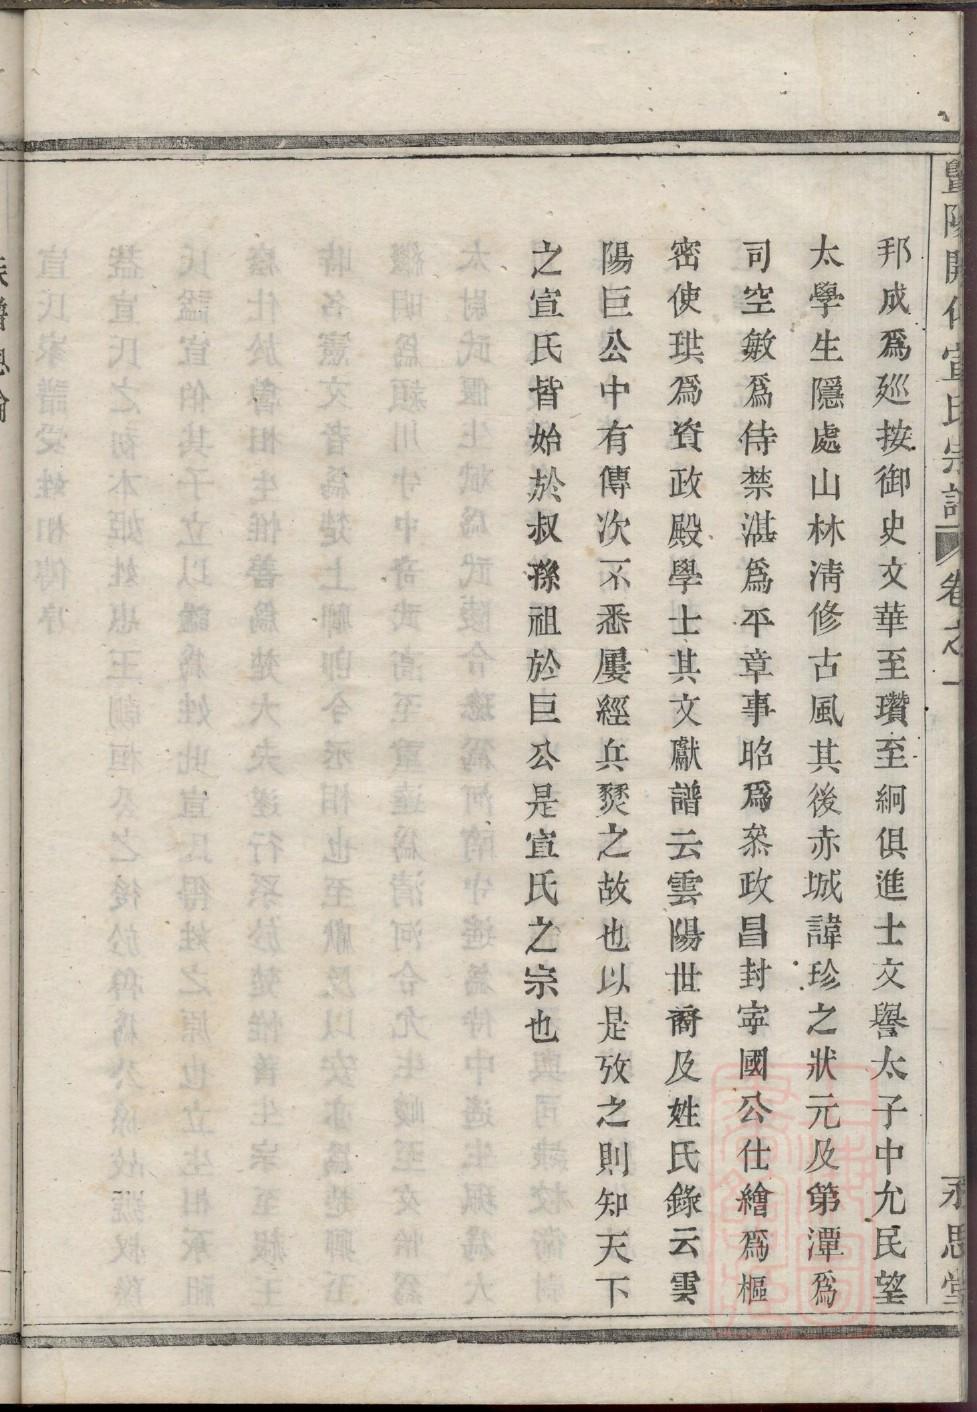 暨陽開化宣氏宗譜 卷之一 永思堂
邦成爲廵按御史文華至瓚至絅俱進士文譽太子中允民望
太學生隱處山林淸修古風其後赤城諱珍之狀元及第潭爲
司空敏爲侍禁湛爲平章事昭爲叅政昌封寕國公仕繪爲樞
密使珙爲資政殿學士其文獻譜云雲陽世裔及姓氏錄云雲
陽巨公中有傳次不悉屢經兵燹之故也以是攷之則知天下
之宣氏皆始於叔孫祖於巨公是宣氏之宗也